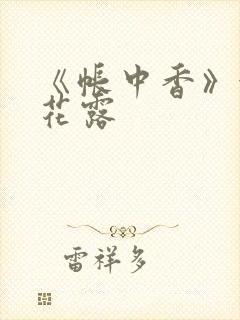 《帐中香》
花露
雷祥多